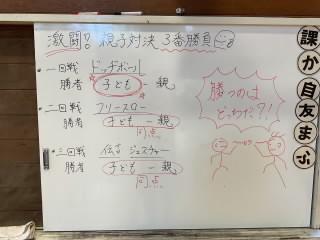 激闘!! 親子対決 3番勝負
・一回戦 ドッチボール
勝者 子ども ー 親
・二回戦 フリースロー
勝者 子ども ー 親
同点
・三回戦 伝言ジェスチャー
勝者 子ども ー 親
同点
勝つのは
どっちだ?!
課
か
自
友
ま